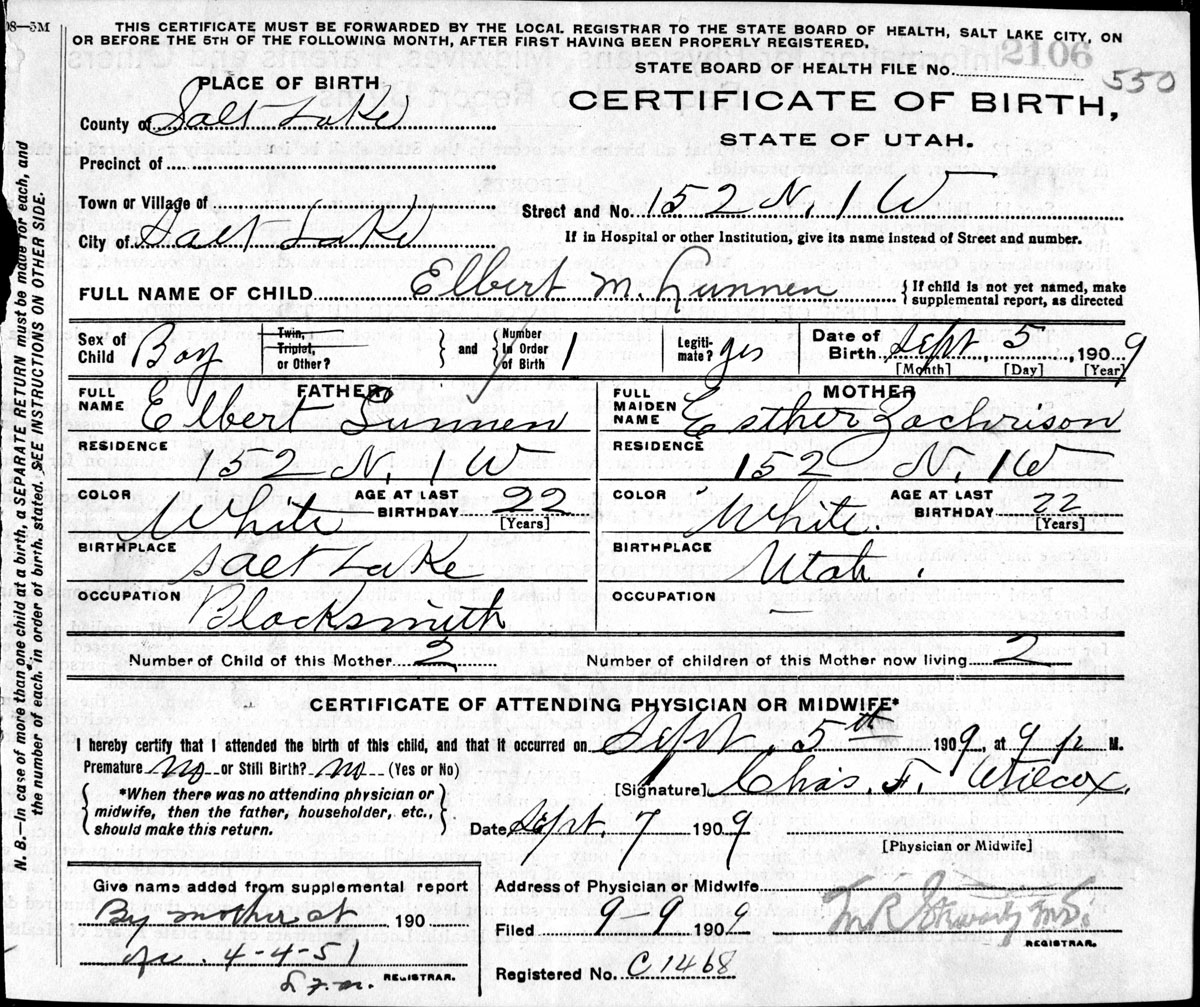 08—5M
THIS CERTIFICATE MUST BE FORWARDED BY THE LOCAL REGISTRAR TO THE STATE BOARD OF HEALTH, SALT LAKE CITY, ON
OR BEFORE THE 5TH OF THE FOLLOWING MONTH, AFTER FIRST HAVING BEEN PROPERLY REGISTERED.
STATE BOARD OF HEALTH FILE NO. 2106
550
PLACE OF BIRTH
CERTIFICATE OF BIRTH,
STATE OF UTAH.
County of Salt Lake
Precinct of
Town or Village of
Street and No. 152 N. 1 W
City of Salt Lake
If in Hospital or other Institution, give its name instead of Street and number.
FULL NAME OF CHILD Elbert M. Lunnen { If child is not yet named, make supplemental report, as directed
Sex of Child Boy Twin, Triplet, or Other? } and { Number in Order of Birth 1 Legitimate? yes Date of Birth Sept, 5, 1909
[Month] [Day] [Year]
FATHER
FULL NAME Elbert Lunnen
MOTHER
FULL MAIDEN NAME Esther Zachrison
RESIDENCE 152 N. 1 W
RESIDENCE 152 N. 1 W
COLOR White AGE AT LAST BIRTHDAY 22 [Years]
COLOR White. AGE AT LAST BIRTHDAY 22 [Years]
BIRTHPLACE Salt Lake
BIRTHPLACE Utah.
OCCUPATION Blacksmith
OCCUPATION —
Number of Child of this Mother 2
Number of children of this Mother now living 2
CERTIFICATE OF ATTENDING PHYSICIAN OR MIDWIFE*
I hereby certify that I attended the birth of this child, and that it occurred on Sept. 5th 1909, at 9 p M.
Premature no or Still Birth? no (Yes or No)
[Signature] Chas. F. Wilcox.
{ *When there was no attending physician or midwife, then the father, householder, etc., should make this return. }
Date Sept. 7 1909
[Physician or Midwife]
Give name added from supplemental report
By mother at 190
4-4-51
REGISTRAR.
Address of Physician or Midwife
Filed 9 9 1909
M.D.
REGISTRAR.
Registered No. C1468
N. B.—In case of more than one child at a birth, a SEPARATE RETURN must be made for each, and
the number of each, in order of birth, stated. SEE INSTRUCTIONS ON OTHER SIDE.